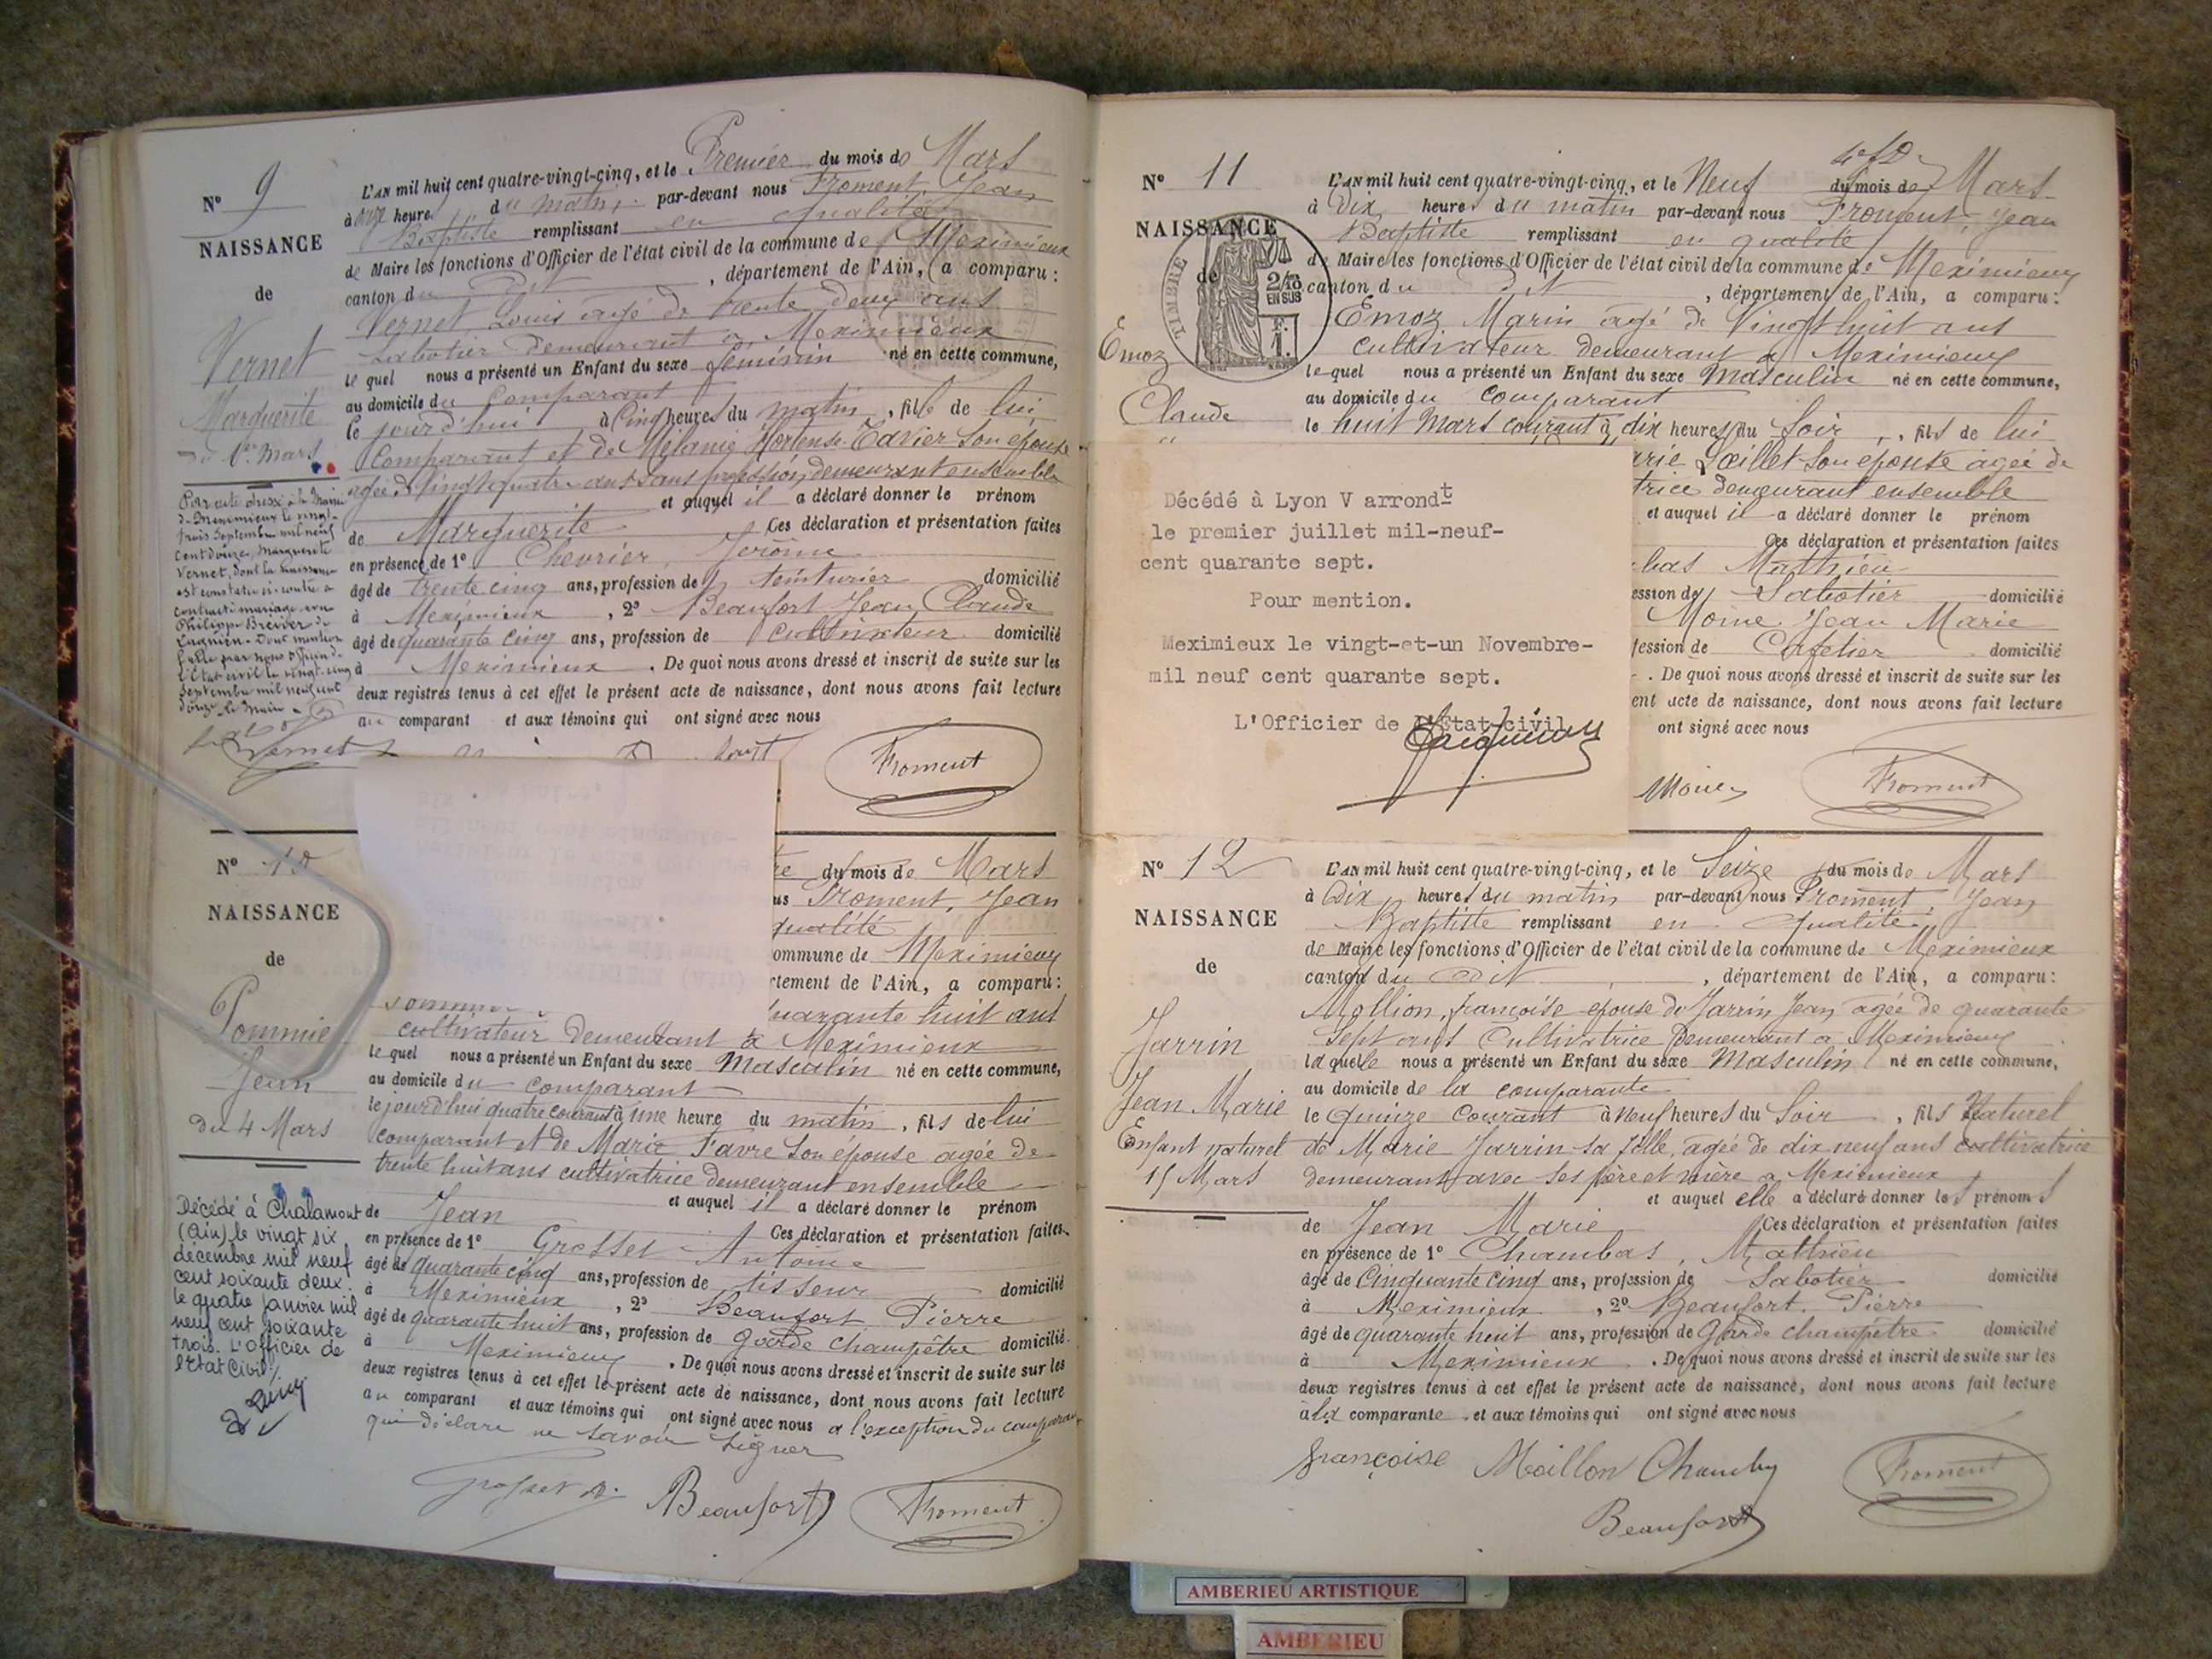 N° 9
NAISSANCE
de
Vernet
Marguerite
du 1er Mars
L'AN mil huit cent quatre-vingt-cinq, et le Premier du mois de Mars
à onze heures du matin, par-devant nous Froment, Jean
Baptiste remplissant en qualité
de Maire les fonctions d'Officier de l'état civil de la commune de Meximieux
canton du dit, département de l'Ain, a comparu:
Vernet Louis âgé de trente deux ans
Sabotier demeurant à Meximieux
lequel nous a présenté un Enfant du sexe féminin né en cette commune,
au domicile du comparant
le jourd'hui à Cinq heures du matin, fille de lui
Comparant et de Mélanie Hortense Tavier son épouse
agée de vingt quatre ans sans profession, demeurant ensemble
et auquel il a déclaré donner le prénom
de Marguerite Ces déclaration et présentation faites
en présence de 1° Chevrier, Jérôme
âgé de trente cinq ans, profession de teinturier domicilié
à Meximieux, 2° Beaufort Jean Claude
âgé de quarante cinq ans, profession de cultivateur domicilié
à Meximieux. De quoi nous avons dressé et inscrit de suite sur les
deux registres tenus à cet effet le présent acte de naissance, dont nous avons fait lecture
au comparant et aux témoins qui ont signé avec nous
Par acte dressé à la Mairie
de Meximieux le vingt-
trois Septembre mil neuf
cent douze, Marguerite
Vernet, dont la naissance
est constatée ci-contre a
contracté mariage avec
Philippe
Lagnieu. Dont mention
faite par nous Officier de
l'Etat civil le vingt-cinq
Septembre mil neuf cent
douze le Maire
Vernet
Froment
N° 10
NAISSANCE
de
Pommie
Jean
Du 4 Mars
du mois de Mars
us Froment, Jean
qualité
ommune de Meximieux
rtement de l'Ain, a comparu:
quarante huit ans
cultivateur demeurant à Meximieux
lequel nous a présenté un Enfant du sexe Masculin né en cette commune,
au domicile du comparant
le jourd'hui quatre courant à une heure du matin, fils de lui
comparant et de Marie Favre son épouse agée de
trente huit ans cultivatrice demeurant ensemble
et auquel il a déclaré donner le prénom
de Jean Ces déclaration et présentation faites
en présence de 1° Grosset Antoine
âgé de quarante cinq ans, profession de tisseur domicilié
à Meximieux, 2° Beaufort Pierre
âgé de quarante huit ans, profession de garde champêtre domicilié
à Meximieux. De quoi nous avons dressé et inscrit de suite sur les
deux registres tenus à cet effet le présent acte de naissance, dont nous avons fait lecture
au comparant et aux témoins qui ont signé avec nous à l'exception du comparant
qui déclare ne savoir signer
Décédé à Chalamont
(Ain) le vingt six
décembre mil neuf
cent soixante deux.
le quatre janvier mil
neuf cent soixante
trois. L'Officier de
l'Etat Civil,
Grosset A. Beaufort Froment
N° 11
NAISSANCE
de
Emoz
Claude
TIMBRE
2/10
EN SUS
F.
1.
L'AN mil huit cent quatre-vingt-cinq, et le Neuf du mois de Mars
à Dix heures du matin par-devant nous Froment, Jean
Baptiste remplissant en qualité
de Maire les fonctions d'Officier de l'état civil de la commune de Meximieux
canton du dit, département de l'Ain, a comparu:
Emoz Marin agé de Vingt huit ans
cultivateur demeurant à Meximieux
lequel nous a présenté un Enfant du sexe Masculin né en cette commune,
au domicile du comparant
le huit Mars courant à dix heures du Soir, fils de lui
arie Loeillet son épouse agée de
trice demeurant ensemble
et auquel il a déclaré donner le prénom
Ces déclaration et présentation faites
bas Mathieu
ession de Sabotier domicilié
Moine Jean Marie
fession de Cafetier domicilié
. De quoi nous avons dressé et inscrit de suite sur les
ent acte de naissance, dont nous avons fait lecture
ont signé avec nous
Moine Froment
Décédé à Lyon V arrondt
le premier juillet mil-neuf-
cent quarante sept.
Pour mention.
Meximieux le vingt-et-un Novembre-
mil neuf cent quarante sept.
L'Officier de l'Etat-civil
N° 12
NAISSANCE
de
Jarrin
Jean Marie
Enfant naturel
15 Mars
L'AN mil huit cent quatre-vingt-cinq, et le Seize du mois de Mars
à Dix heures du matin par-devant nous Froment, Jean
Baptiste remplissant en qualité
de Maire les fonctions d'Officier de l'état civil de la commune de Meximieux
canton du dit, département de l'Ain, a comparu:
Mollion, françoise épouse de Jarrin Jean agée de quarante
sept ans Cultivatrice demeurant à Meximieux
laquelle nous a présenté un Enfant du sexe Masculin né en cette commune,
au domicile de la comparante
le quinze courant à neuf heures du Soir, fils Naturel
de Marie Jarrin sa fille, agée de dix neuf ans cultivatrice
demeurant avec ses père et mère à Meximieux
et auquel elle a déclaré donner les prénoms
de Jean Marie Ces déclaration et présentation faites
en présence de 1° Chambas, Mathieu
âgé de Cinquante cinq ans, profession de Sabotier domicilié
à Meximieux, 2° Beaufort, Pierre
âgé de quarante huit ans, profession de Garde champêtre domicilié
à Meximieux. De quoi nous avons dressé et inscrit de suite sur les
deux registres tenus à cet effet le présent acte de naissance, dont nous avons fait lecture
à la comparante et aux témoins qui ont signé avec nous
françoise Moillon Froment
Beaufort
AMBERIEU ARTISTIQUE
AMBERIEU